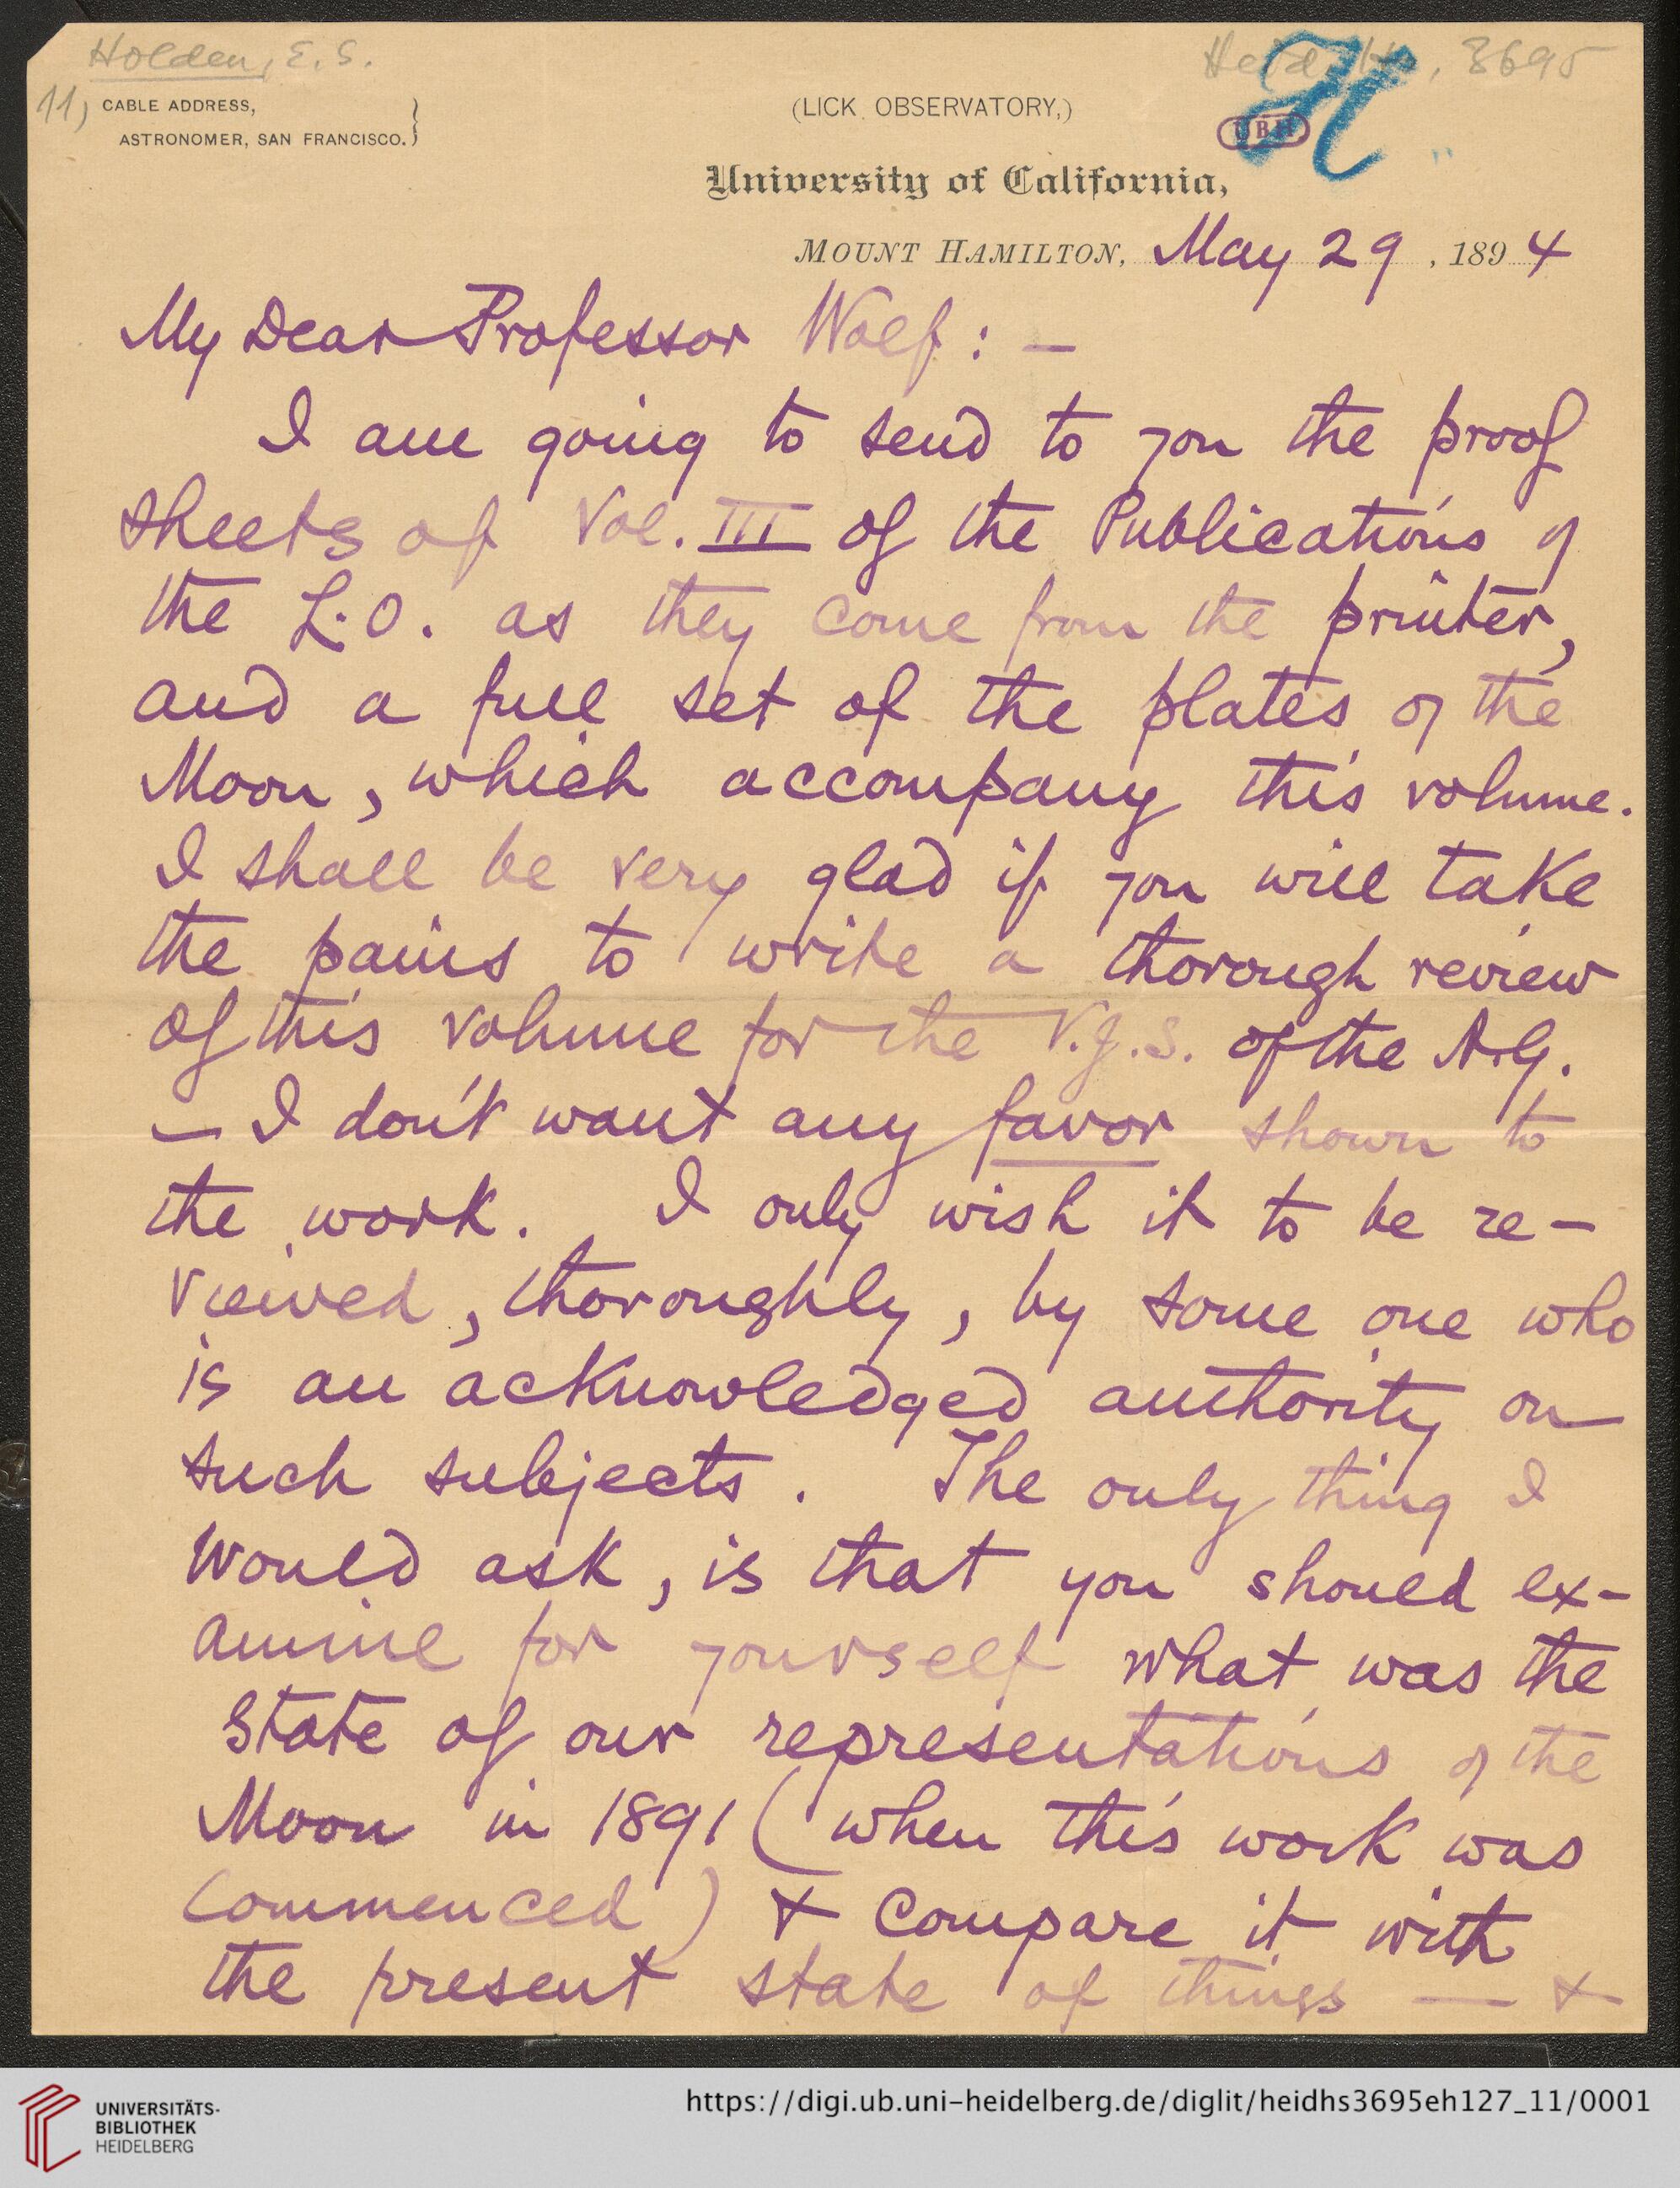 Holden, E. S.
Heid. Hs. 3695
11)
CABLE ADDRESS,
ASTRONOMER, SAN FRANCISCO.
(LICK OBSERVATORY,)
UBH
University of California,
MOUNT HAMILTON, May 29, 1894
My Dear Professor Wolf: —
I am going to send to you the proof
sheets of Vol. III of the Publications of
the L.O. as they come from the printer,
and a full set of the plates of the
Moon, which accompany this volume.
I shall be very glad if you will take
the pains to write a thorough review
of this volume for the V.J.S. of the A.G.
— I don't want any favor shown to
the work. I only wish it to be re-
viewed, thoroughly, by some one who
is an acknowledged authority on
such subjects. The only thing I
would ask, is that you should ex-
amine for yourself what was the
state of our representations of the
Moon in 1891 (when this work was
commenced) & compare it with
the present state of things — &
UNIVERSITÄTS-
BIBLIOTHEK
HEIDELBERG
https://digi.ub.uni-heidelberg.de/diglit/heidhs3695eh127_11/0001